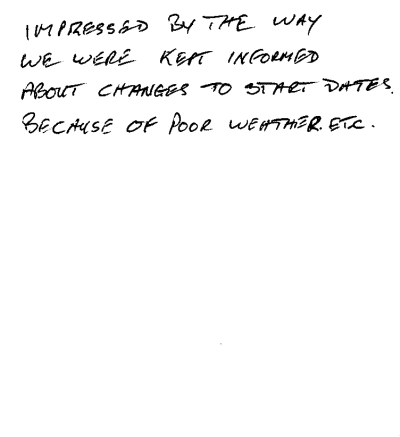 IMPRESSED BY THE WAY
WE WERE KEPT INFORMED
ABOUT CHANGES TO START DATES.
BECAUSE OF POOR WEATHER. ETC.